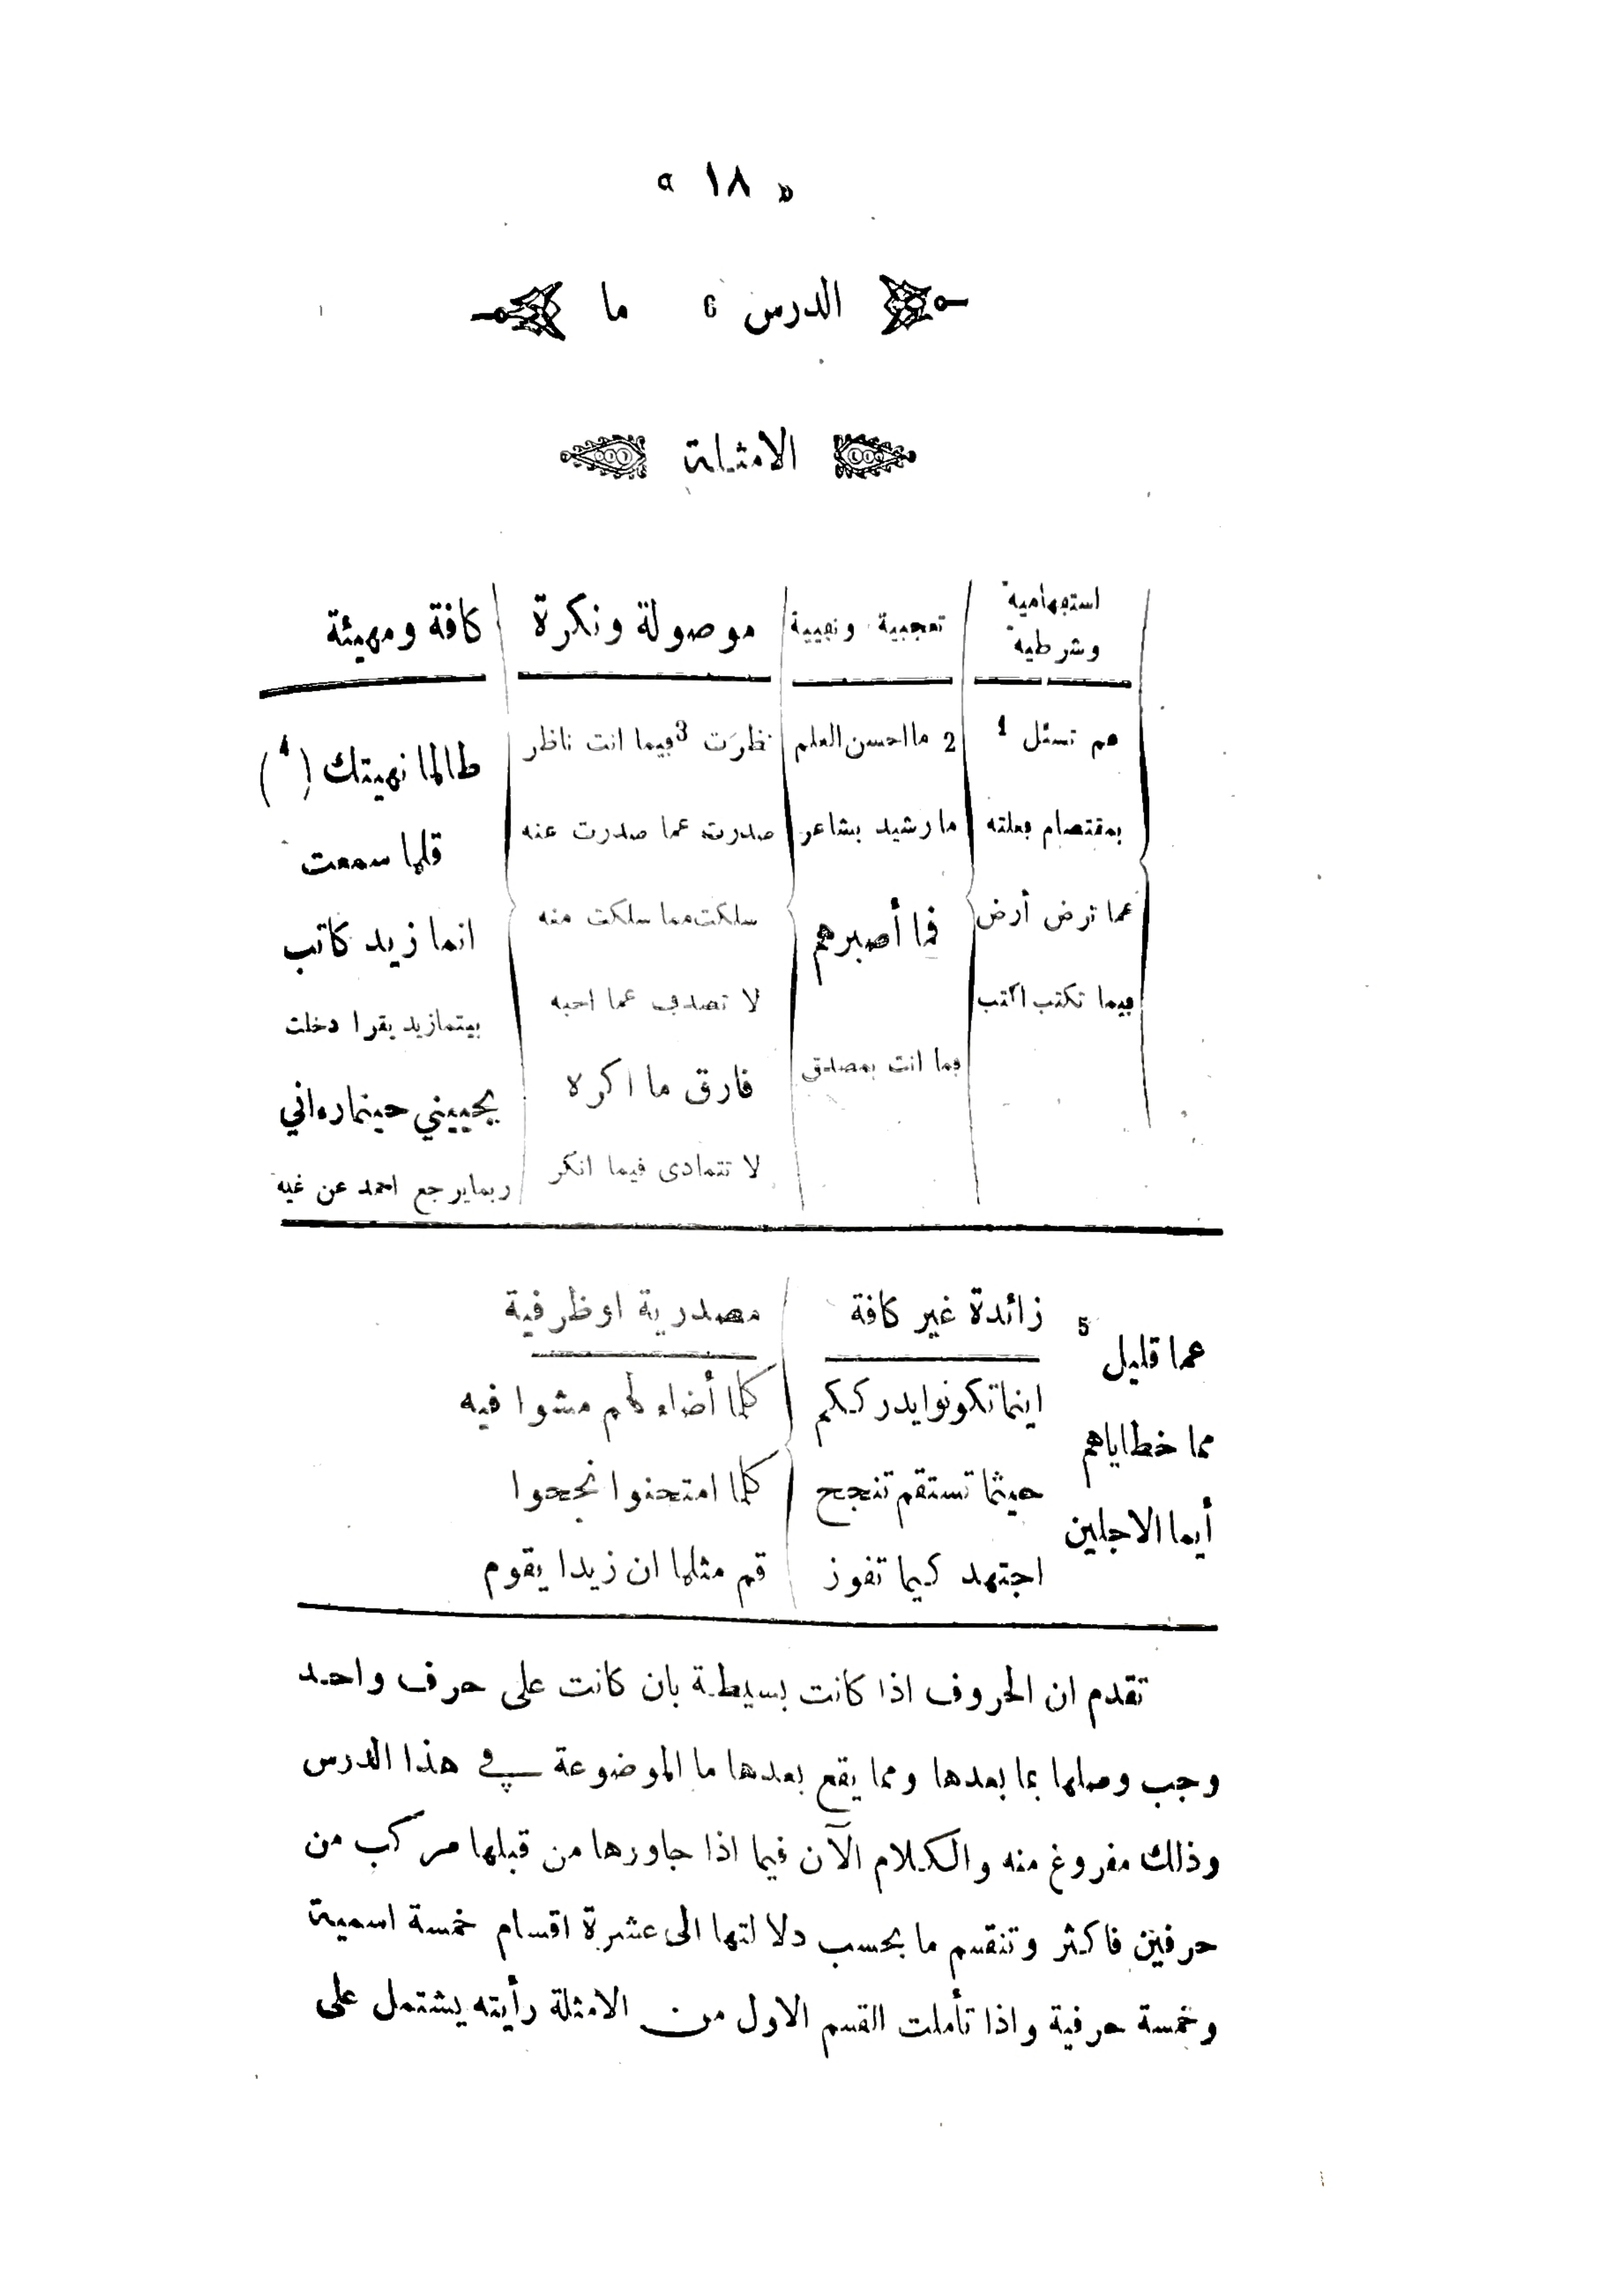 « ١٨ »
الدرس 6 ما
الامثلة
استفهامية
وشرطية
تعجبية ونفيية
موصولة ونكرة
كافة ومهيئة
مم تسئل 1
2 ما احسن العلم
نظرت 3 فيما انت ناظر
طالما نهيتك (4)
بمقتضام فعلته
ما رشيد بشاعر
صدرت عما صدرت عنه
قلما سمعت
عما ترض أرض
فما أصبرهم
سلكت مما سلكت منه
انما زيد كاتب
فيما تكتب اكتب
لا تصدف عما احبه
بينمازيد يقرا دخلت
فما انت بمصدق
فارق ما اكره
يجيبني حينماره اني
لا تتمادى فيما انكر
ربمايرجع احمد عن غيه
زائدة غير كافة
مصدرية او ظرفية
5 عما قليل
اينما تكونوا يدرككم
كلما أضاء لهم مشوا فيه
مما خطاياهم
حيثما تستقم تنجح
كلما امتحنوا نجحوا
أيما الاجلين
اجتهد كيما تفوز
قم مثلما ان زيدا يقوم
تقدم ان الحروف اذا كانت بسيطة بان كانت على حرف واحد
وجب وصلها بما بعدها ومما يقع بعدها ما الموضوعة في هذا الدرس
وذلك مفروغ منه والكلام الآن فيما اذا جاورها من قبلها مركب من
حرفين فاكثر وتنقسم ما بحسب دلالتها الى عشرة اقسام خمسة اسمية
وخمسة حرفية واذا تأملت القسم الاول من الامثلة رأيته يشتمل على